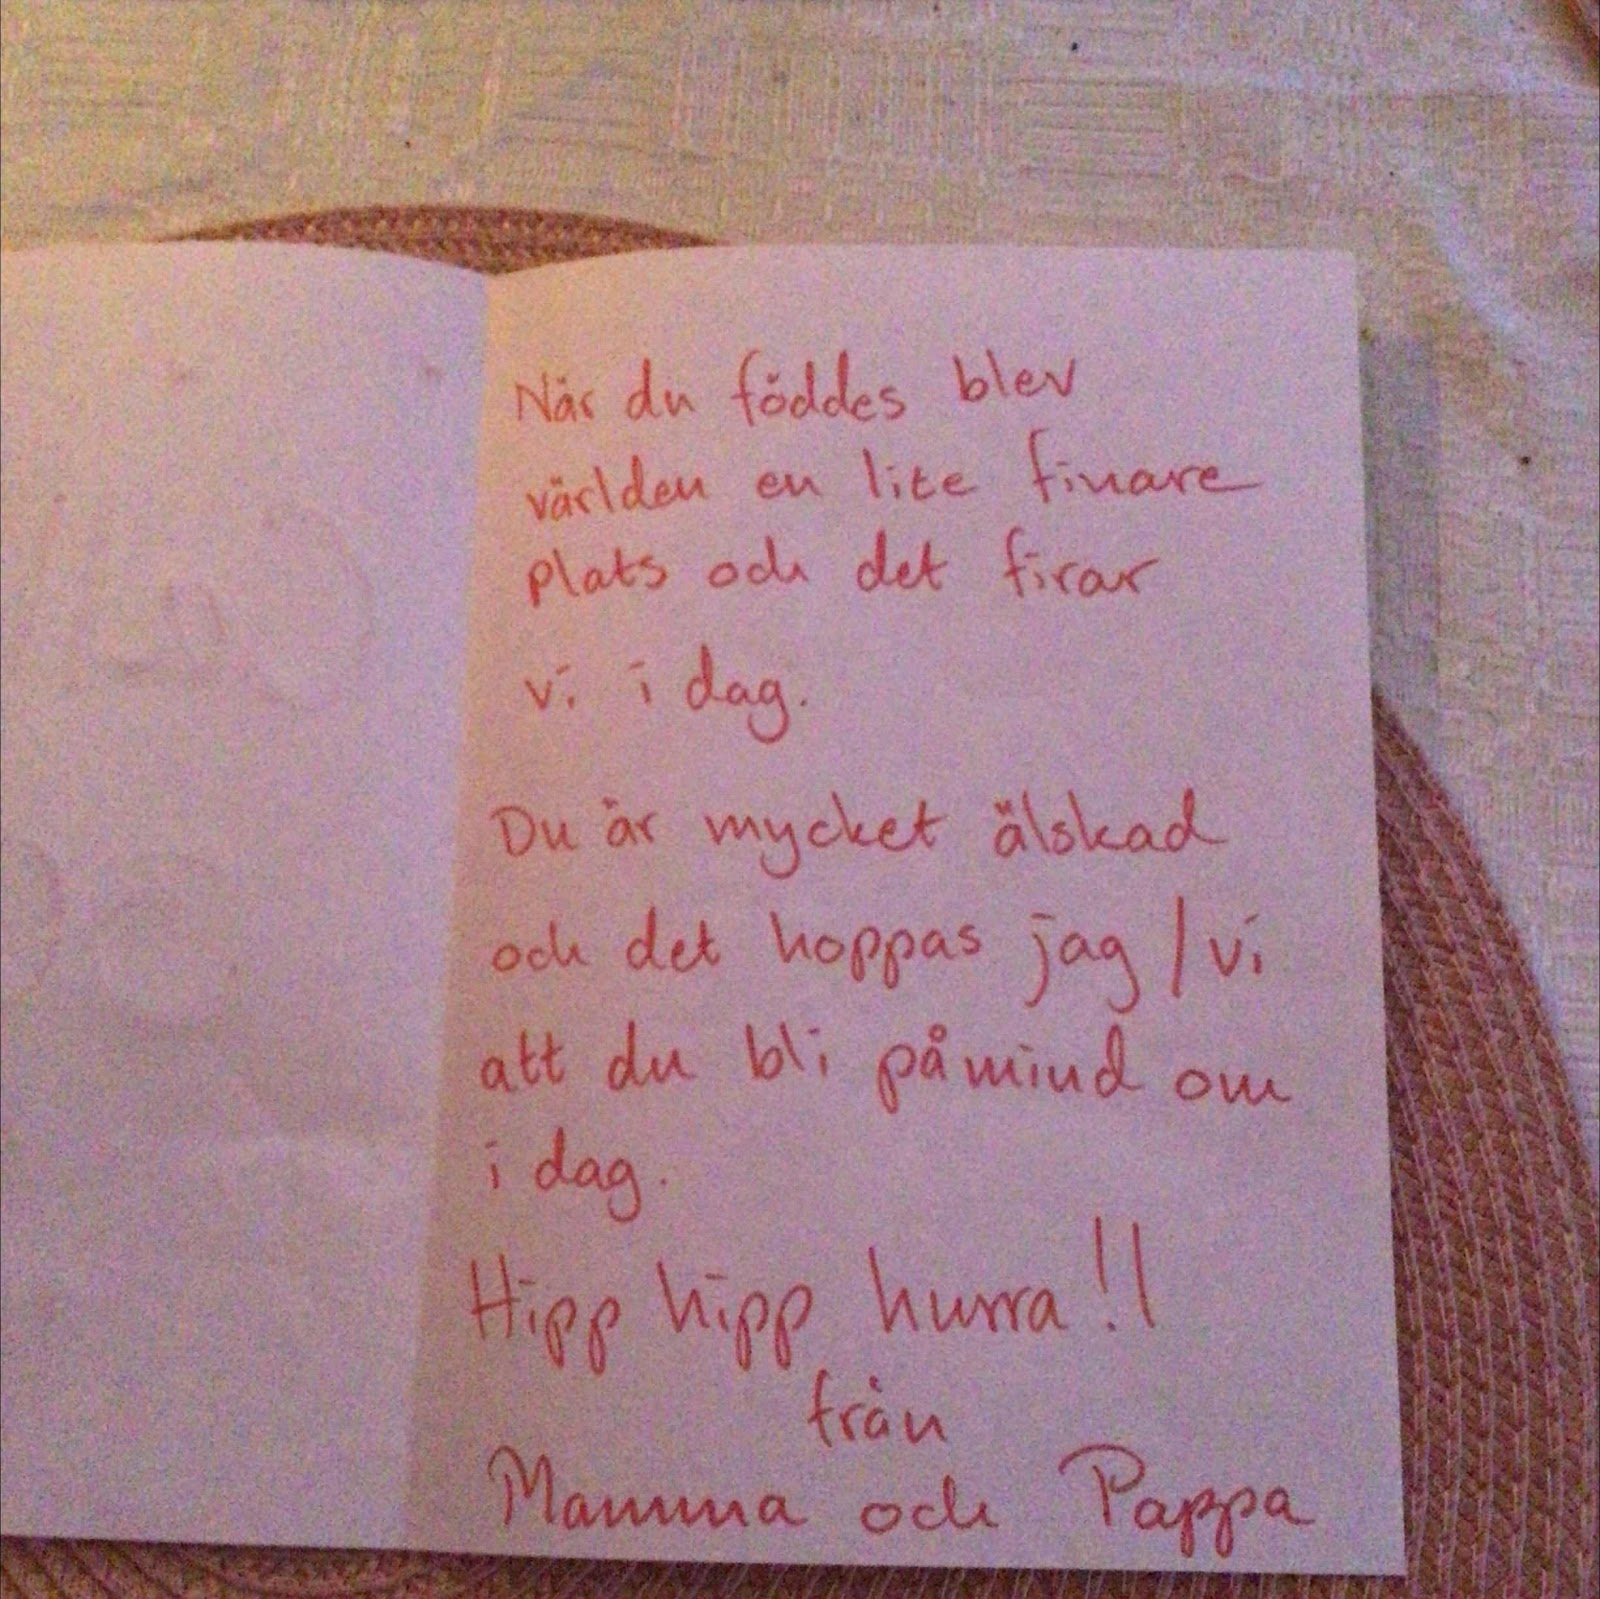 När du föddes blev
världen en lite finare
plats och det firar
vi i dag.
Du är mycket älskad
och det hoppas jag / vi
att du bli påmind om
i dag.
Hipp hipp hurra!!
från
Mamma och Pappa